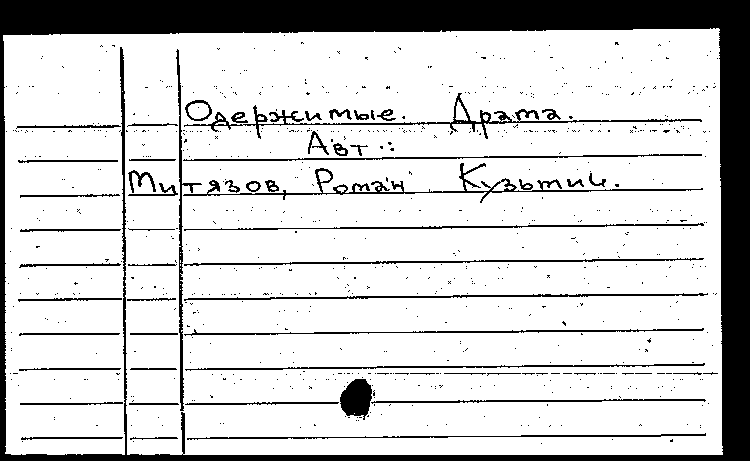 Одержимые. Драма.
Авт.:
Митязов, Роман Кузьмич.